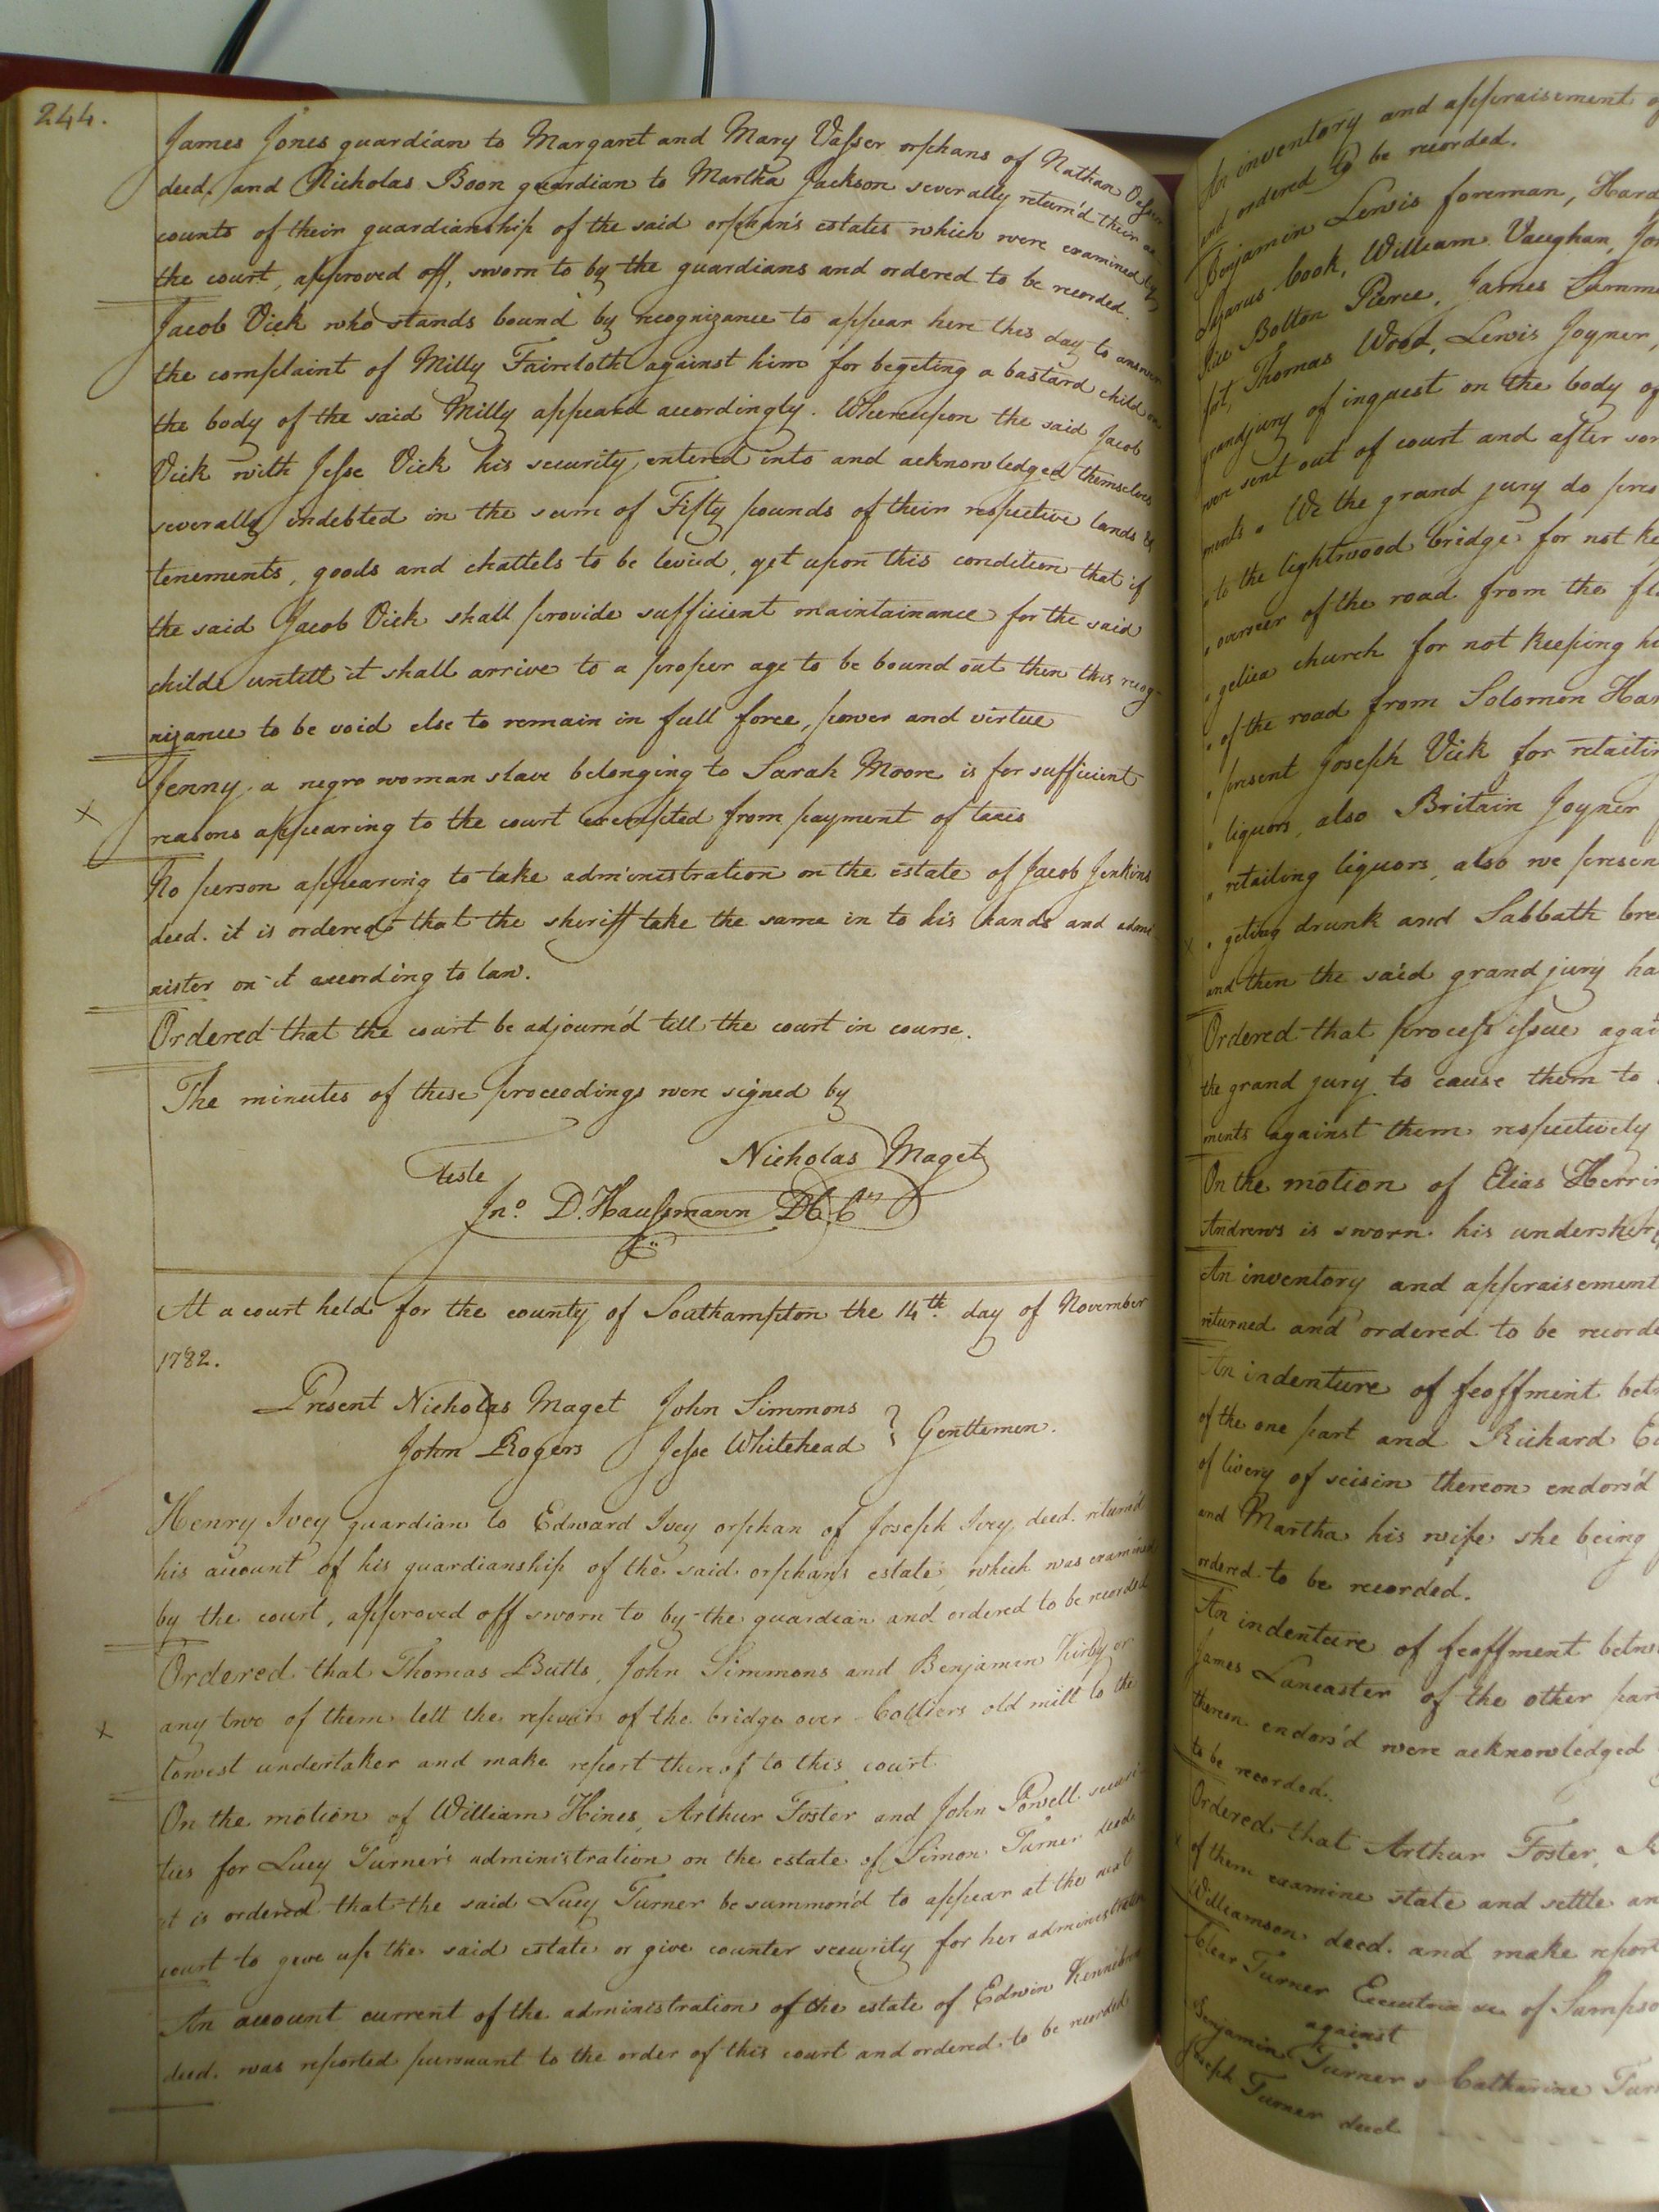 244.
James Jones guardian to Margaret and Mary Vasser orphans of Nathan Vasser
deed. and Nicholas Boon guardian to Martha Jackson severally return'd their ac
counts of their guardianship of the said orphan's estates which were examined by
the court, approved off, sworn to by the guardians and ordered to be recorded.
Jacob Vick who stands bound by recognizance to appear here this day to answer
the complaint of Milly Faircloth against him for begeting a bastard child on
the body of the said Milly appeard accordingly. Whereupon the said Jacob
Vick with Jesse Vick his security entered into and acknowledged themselves
severally indebted in the sum of Fifty pounds of their respective lands &
tenements, goods and chattels to be levied, yet upon this condition that if
the said Jacob Vick shall provide sufficient maintainance for the said
childe untill it shall arrive to a proper age to be bound out then this recog-
nizance to be void else to remain in full force, power and virtue
Jenny a negro woman slave belonging to Sarah Moore is for sufficient
x reasons appearing to the court exempted from payment of taxes
No person appearing to take administration on the estate of Jacob Jenkins
deed. it is ordered that the sheriff take the same in to his hands and admi
nister on it according to law.
Ordered that the court be adjourn'd till the court in course.
The minutes of these proceedings were signed by
Nicholas Maget
Teste
Jno. D. Haussmann
At a court held for the county of Southampton the 14th. day of November
1782.
Present Nicholas Maget John Simmons
John Rogers Jesse Whitehead } Gentlemen.
Henry Ivey guardian to Edward Ivey orphan of Joseph Ivey deed. return'd
his account of his guardianship of the said orphan's estate, which was examined
by the court, approved off sworn to by the guardian and ordered to be recorded
Ordered that Thomas Butts, John Simmons and Benjamin Kirby or
x any two of them lett the repair of the bridge over Colliers old mill to the
lowest undertaker and make report thereof to this court
On the motion of William Hines, Arthur Foster and John Powell securi
ties for Lucy Turner's administration on the estate of Simon Turner deed.
it is ordered that the said Lucy Turner be summon'd to appear at the next
court to give up the said estate or give counter security for her administration
An account current of the administration of the estate of Edwin
deed. was reported pursuant to the order of this court and ordered to be recorded.
An inventory and appraisement of
and ordered to be recorded.
Benjamin Lewis foreman, Hard
Lazarus Cook, William Vaughan,
Bolton Pierce, James
Thomas Wood, Lewis Joyner,
grandjury of inquest on the body of
were sent out of court and after
ments " We the grand jury do
" to the lightwood bridge for not
" overseer of the road from the
" gelica church for not keeping
" of the road from Solomon
" present Joseph Vick for
" liquors, also Britain Joyner
" retailing liquors, also we
x " geting drunk and Sabbath
and then the said grand jury
Ordered that process issue
the grand jury to cause them to
ments against them respectively
On the motion of Elias
Andrews is sworn his
An inventory and appraisement
returned and ordered to be
An indenture of feoffment
of the one part and Richard
of livery of seisin thereon endors'd
and Martha his wife she being
ordered to be recorded.
An indenture of feoffment
James Lancaster of the other part
thereon endors'd were acknowledged
to be recorded.
Ordered that Arthur Foster,
of them examine state and settle an
Williamson deed. and make report
Clear Turner Executrix &c of
against
Benjamin Turner & Catharine
Joseph Turner deed